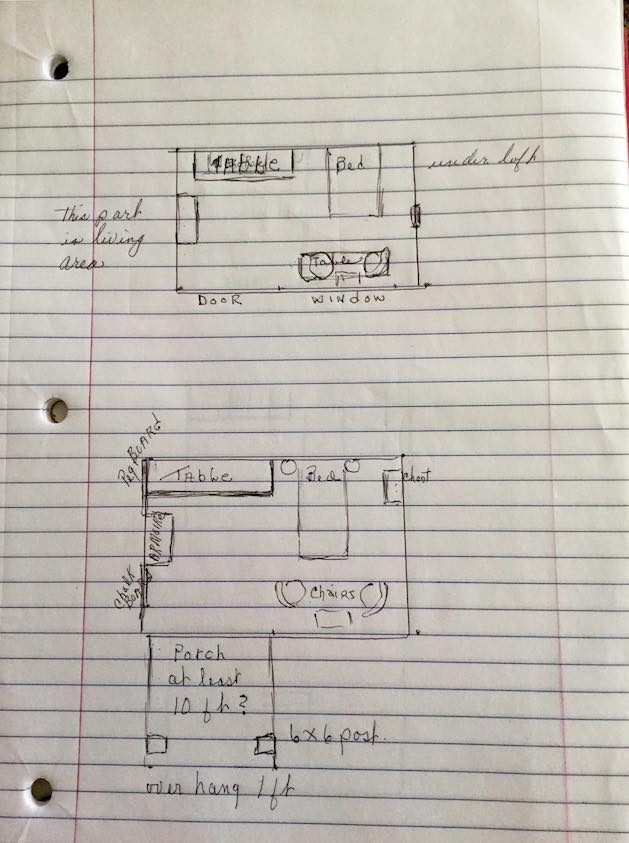 Table
Bed
under loft
This part
is living
area
Table
DOOR
WINDOW
Peg BOARD
TABLe
Bed
ARMOIRE
Chalk
BOARD
ChAIRS
Porch
at least
10 ft?
6x6 post.
over hang 1ft